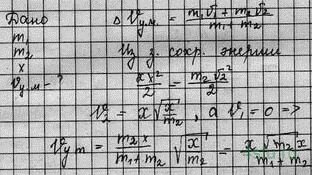 Дано
m₁
m₂
x
V ц.м - ?
V ц.м. = (m₁v₁ + m₂v₂) / (m₁ + m₂)
Из з. сохр. энергии
xx²/2 = m₂v₂²/2
V₂ = x√(x/m₂), а V₁ = 0 =>
V цm = (m₂x)/(m₁+m₂) √(x/m₂) = (x√(m₂x))/(m₁+m₂)